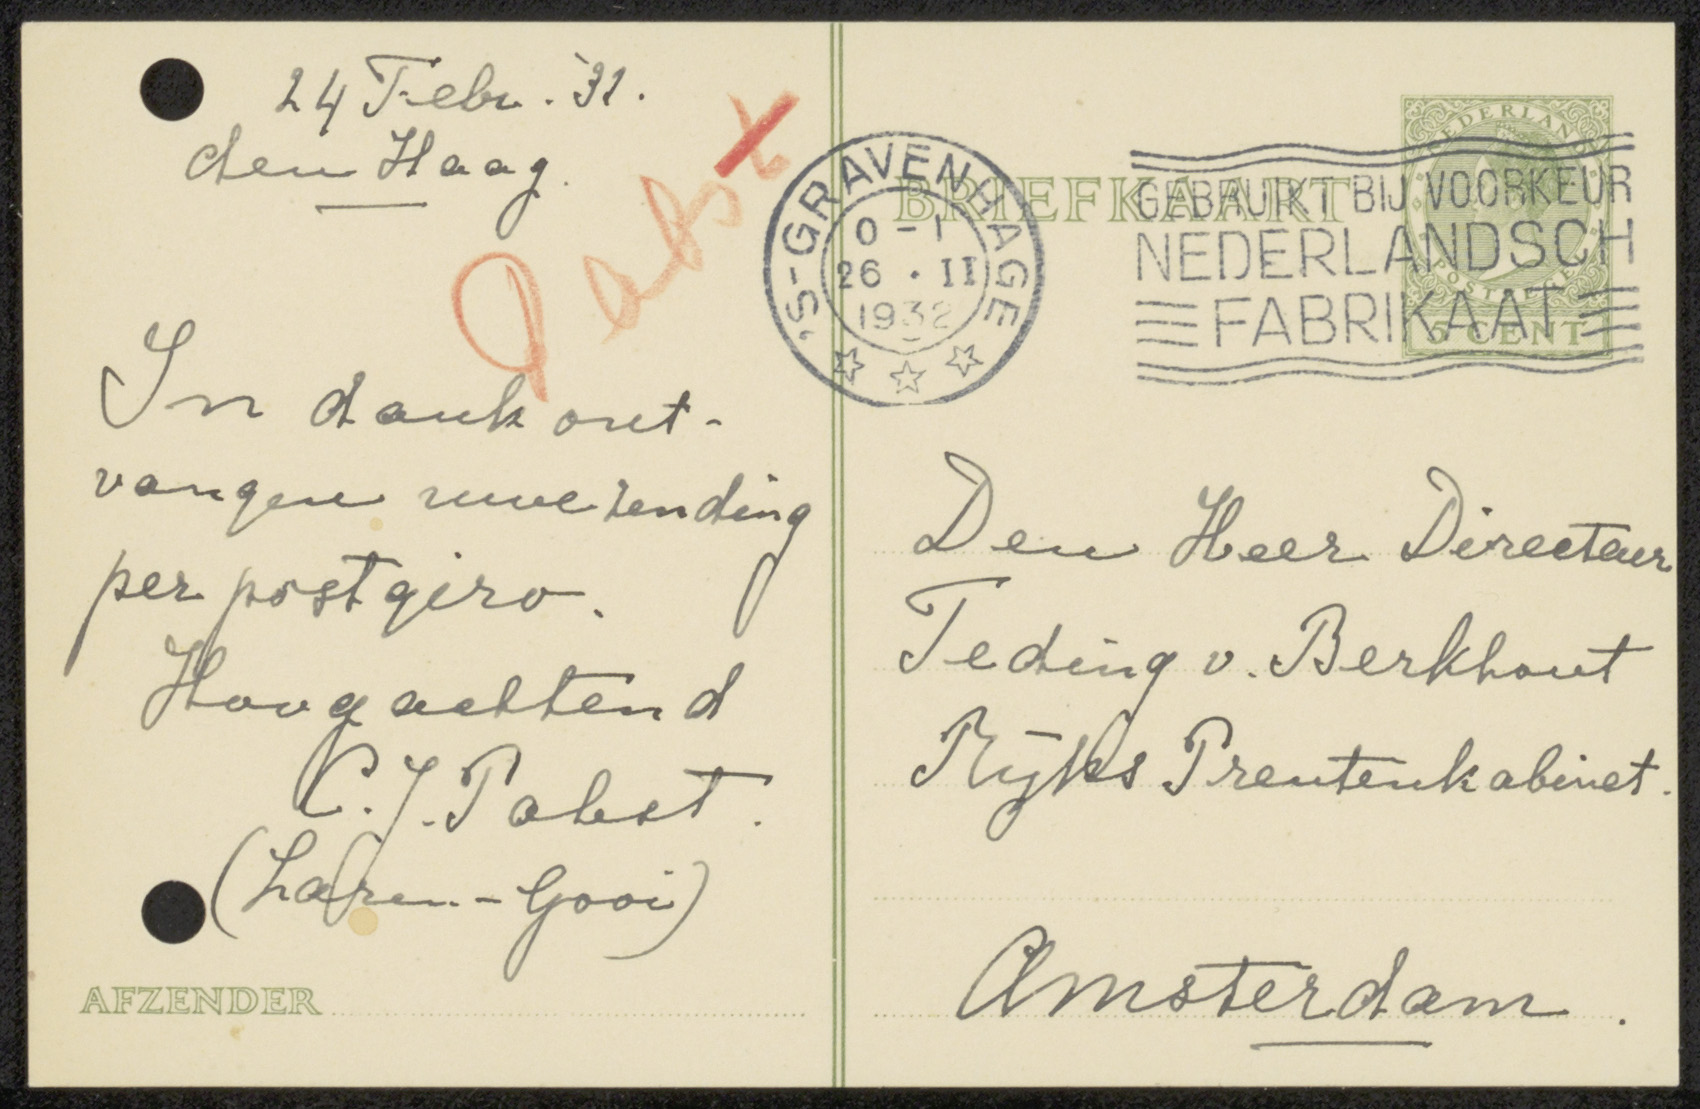 24 Febr. '32.
den Haag.
Pabst
In dank ont-
vangen uwe zending
per postgiro.
Hoogachtend
C. J. Pabst.
(Laren-Gooi)
AFZENDER
'S-GRAVENHAGE
0-1
26 . II
1932
GEBRUIKT BIJ VOORKEUR
NEDERLANDSCH
FABRIKAAT
BRIEFKAART
NEDERLAND
5 CENT
Den Heer Directeur
Teding v. Berkhout
Rijks Prentenkabinet.
Amsterdam.